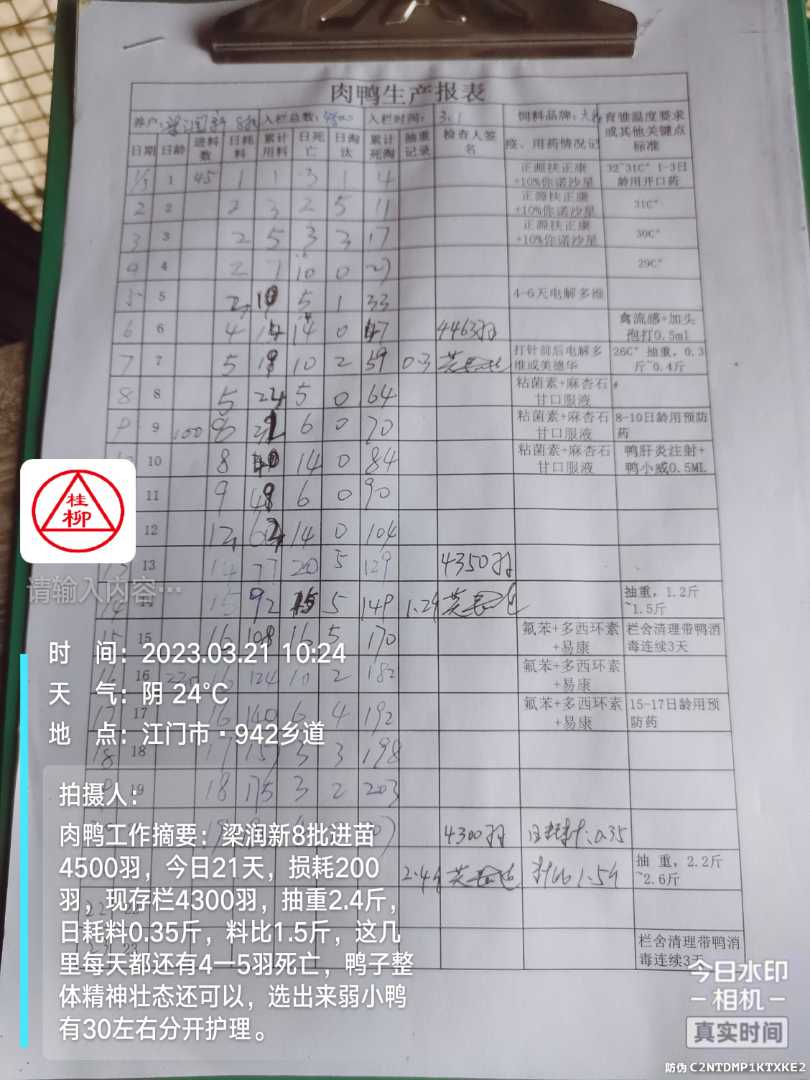 肉鸭生产报表
养户: 梁润新 8批 入栏总数: 4500 入栏时间: 3.1 饲料品牌: 育雏温度要求或其他关键点标准
日期 日龄 进料数 日耗料 累计用料 日死亡 日淘汰 累计死淘 抽重记录 检查人签名 疫、用药情况记
1/3 1 45 1 1 3 1 4 正源扶正康+10%你诺沙星 32~31C° 1-3日龄用开口药
2 2 2 3 2 5 11 正源扶正康+10%你诺沙星 31C°
3 3 2 5 3 3 17 正源扶正康+10%你诺沙星 30C°
4 4 2 7 10 0 27 29C°
5 5 2 5 1 33 4-6天电解多维
6 6 4 14 14 0 47 4463羽 禽流感+加头孢打0.5ml
7 7 5 19 10 2 59 0.3 打针前后电解多维或美德华 26C° 抽重,0.3斤~0.4斤
8 8 5 24 5 0 64 粘菌素+麻杏石甘口服液
9 9 100 6 0 70 粘菌素+麻杏石甘口服液 8-10日龄用预防药
10 8 40 14 0 84 粘菌素+麻杏石甘口服液 鸭肝炎注射+鸭小威0.5ML
11 9 6 0 90
12 12 14 0 104
13 14 77 20 5 129 4350羽
14 15 92 15 5 149 1.29 抽重,1.2斤~1.5斤
15 16 108 16 5 170 氟苯+多西环素+易康 栏舍清理带鸭消毒连续3天
16 16 124 10 2 182 氟苯+多西环素+易康
17 17 16 140 6 4 192 氟苯+多西环素+易康 15-17日龄用预防药
18 18 17 157 3 3 198
19 18 175 3 2 203
4300羽 日耗料:0.35
2.4斤 料比1.5斤 抽重,2.2斤~2.6斤
22
栏舍清理带鸭消毒连续3天
桂柳
请输入内容…
时 间: 2023.03.21 10:24
天 气: 阴 24℃
地 点: 江门市·942乡道
拍摄人:
肉鸭工作摘要: 梁润新8批进苗
4500羽，今日21天，损耗200
羽，现存栏4300羽，抽重2.4斤，
日耗料0.35斤，料比1.5斤，这几
里每天都还有4—5羽死亡，鸭子整
体精神壮态还可以，选出来弱小鸭
有30左右分开护理。
今日水印
相机
真实时间
防伪 C2NTDMP1KTXKE2